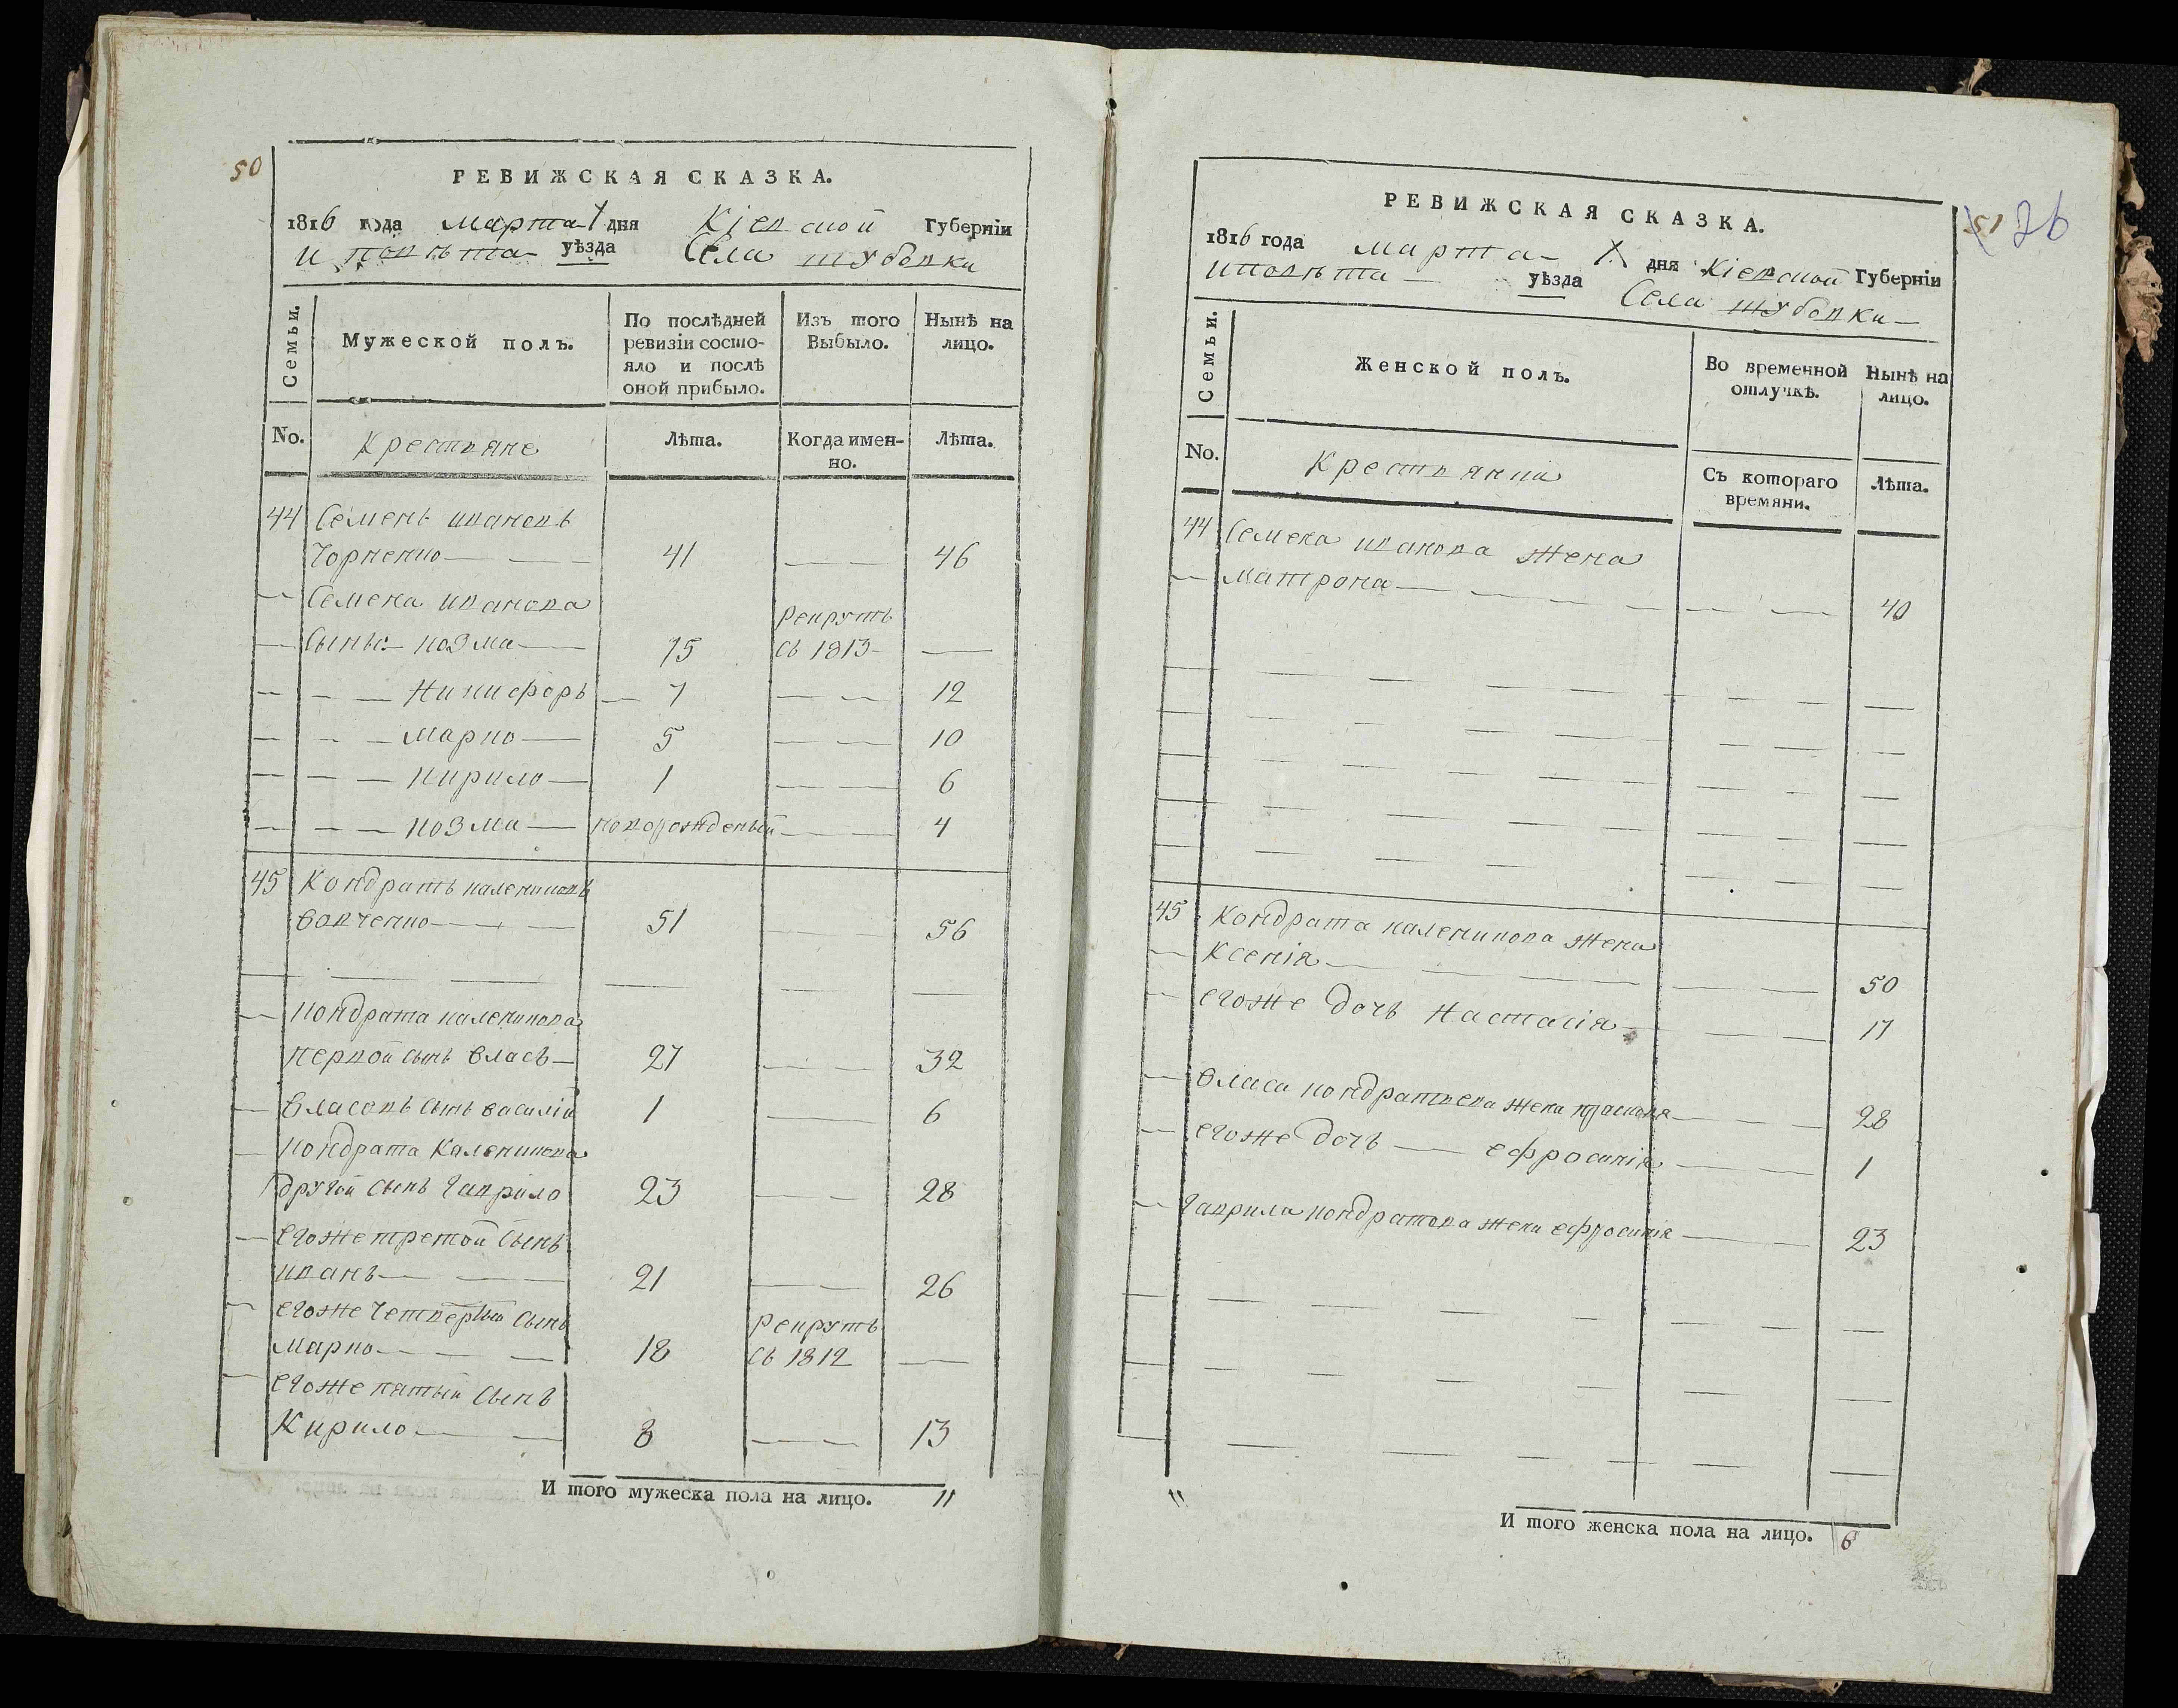 50
РЕВИЖСКАЯ СКАЗКА.
1816 года марта 1 дня Кіевской Губерніи
и повѣта уѣзда Села шубовки
Семьи.
Мужеской полъ.
По послѣдней ревизіи состояло и послѣ оной прибыло.
Изъ того Выбыло.
Нынѣ на лицо.
No.
Крестьяне
Лѣта.
Когда именно.
Лѣта.
44 Семенъ ивановъ
Чорненко — — 41 — — 46
— Семена иванова рекрутъ
— Сынъ: козма — 15 съ 1813 —
— — — Никифоръ — 7 — — 12
— — — марко — 5 — — 10
— — — кирило — 1 — — 6
— — — козма — новорожденый — — 4
45 Кондратъ калениковъ
вовченко — — — 51 — — 56
— кондрата каленикова
первой сынъ власъ — 27 — — 32
— власовъ сынъ василій 1 — 6
— кондрата Каленикова
другой сынъ гаврило 23 — — 28
— егоже третой сынъ
иванъ — — — 21 — — 26
— егоже четвертый сынъ рекрутъ
марко — — — 18 съ 1812 —
— егоже пятый сынъ
Кирило — — 8 — — 13
И того мужеска пола на лицо. 11
51 26
РЕВИЖСКАЯ СКАЗКА.
1816 года марта 1 дня кіевской Губерніи
иповѣта — уѣзда Села шубовки —
Семьи.
Женской полъ.
Во временной отлучкѣ.
Нынѣ на лицо.
No.
Крестьянки
Съ котораго времяни.
Лѣта.
44 Семена иванова жена
— матрона — — — — — — 40
45 кондрата каленикова жена
— Ксенія — — — — — 50
— егоже дочь настасія — — — 17
— власа кондратьева жена — — — 28
— егоже дочь — ефросинія — — — 1
— гаврила кондратова жена ефросинія — — 23
"
И того женска пола на лицо. 6